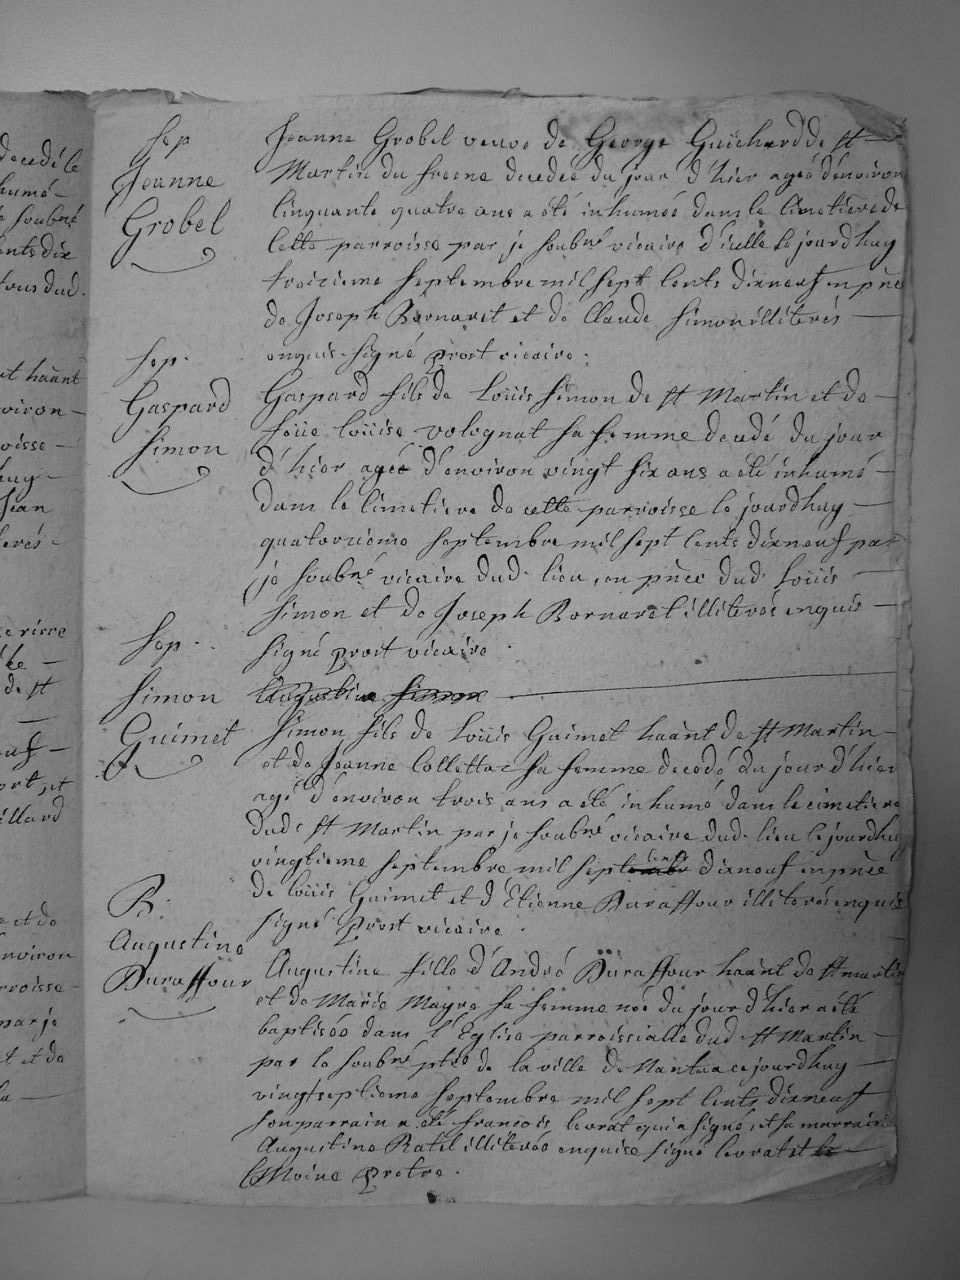 decedé le
humé
je soubné
cents dix
tous dud.
et haant
environ
roisse
huy
Jean
terés
de St
neuf
ort, et
illard
e et de
environ
rroisse
par je
t et de
Sep
Jeanne
Grobel
Jeanne Grobel veuve de George Guichard de St
Martin du fresne decedée du jour d'hier ageé d'environ
Cinquante quatre ans a été inhumeé dans le Cimetiere de
Cette parroisse par je soubné vicaire d'icelle le jourd'huy
troizieme septembre mil sept Cents dixneuf en pñce
de Joseph Bornaret et de Claude Simon illiterés
enquis signé prost vicaire.
Sep.
Gaspard
Simon
Gaspard fils de Loüis Simon de St Martin et de
feüe Loüise volognat sa femme decedé du jour
d'hier ageé d'environ vingt six ans a été inhumé
dans le Cimetiere de cette parroisse le jourdhuy
quatorzieme septembre mil sept Cents dixneuf par
je soubné vicaire dud. lieu, en pñce dud. Loüis
Simon et de Joseph Bornaret illiterés enquis
signé prost vicaire.
Sep.
Simon
Guimet
Augustine Simon
Simon fils de Loüis Guimet haant de St Martin
et de Jeanne Collettaz sa femme decedé du jour d'hier
agé d'environ trois ans a été inhumé dans le cimetiere
dud. St Martin par je soubné vicaire dud. lieu le jourdhuy
vingtieme septembre mil septembr cents dixneuf en pñce
de Loüis Guimet et d'Etienne Buraffour illiterés enquis
signé Prost vicaire.
B.
Augustine
Buraffour
Augustine fille d'André Buraffour haant de St martin
et de Marie Mayre sa femme neé du jour d'hier a été
baptiseé dans l'Eglise parroissialle dud. St Martin
par le soubné ptre de la ville de Nantua ce jourdhuy
vingtseptieme septembre mil sept Cents dixneuf
son parrain a été francois levrat qui a signé, et sa marraine
Augustine Ratel illitereé enquise signé levrat et le
C Moine Pretre.